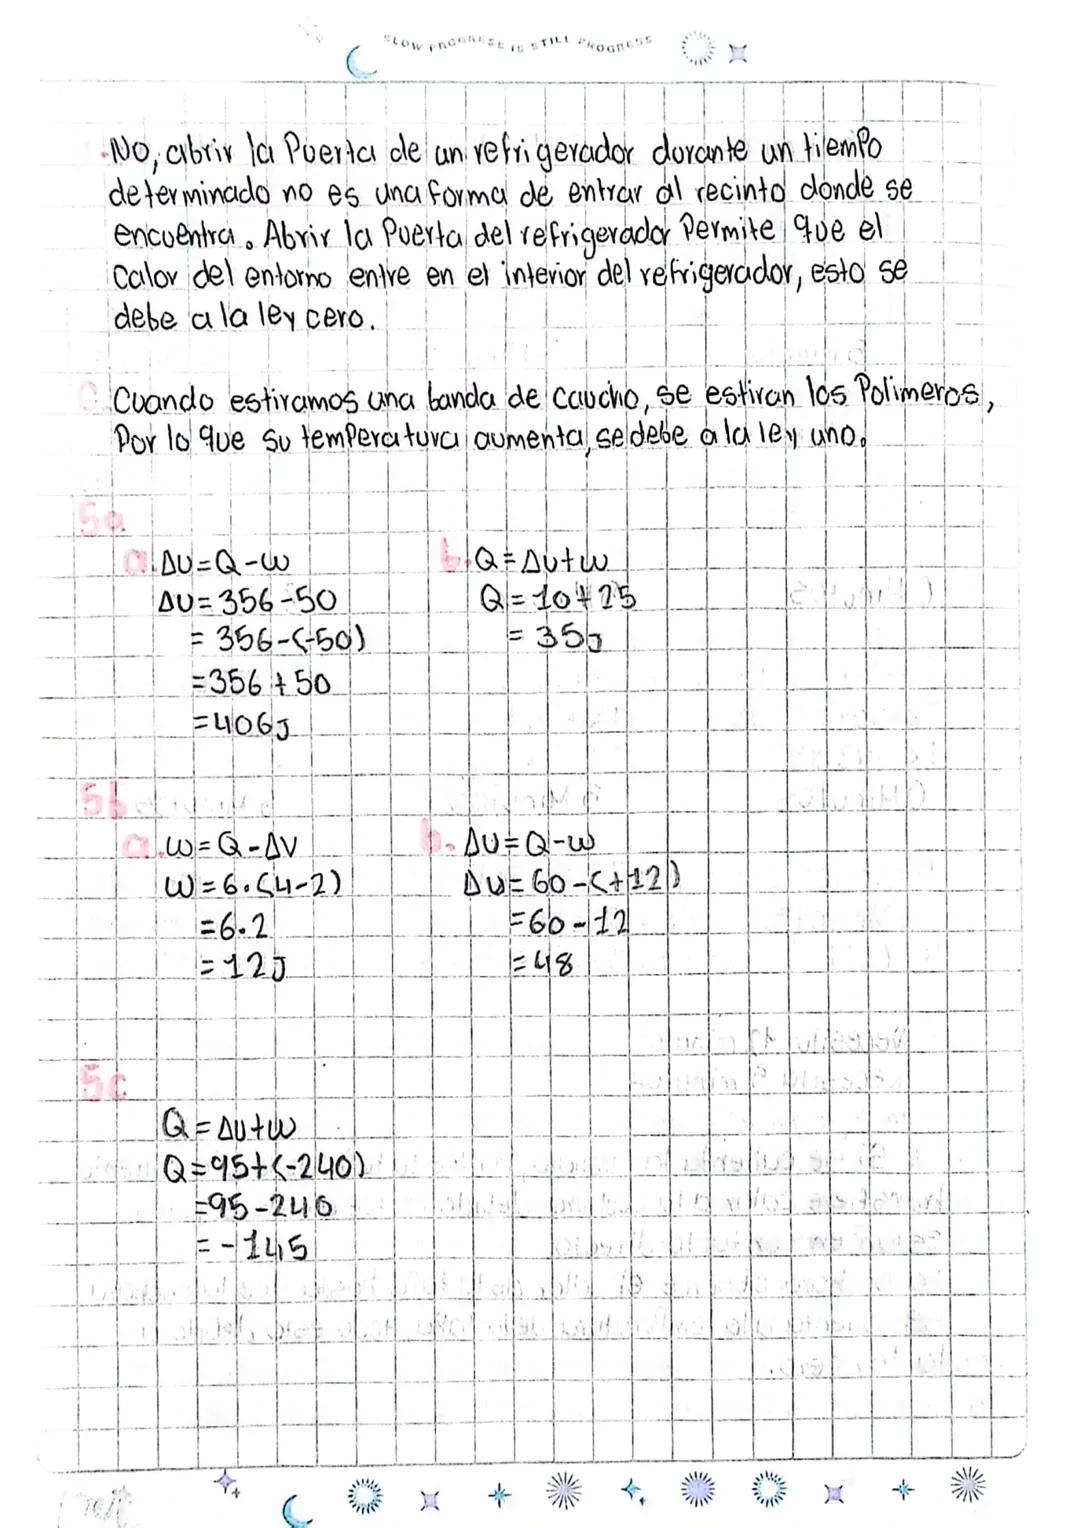 SLOW PROGRESS IS STILL PROGRESS
No, abrir la Puerta de un refrigerador durante un tiempo
determinado no es una forma de entrar al recinto donde se
encuentra. Abrir la Puerta del refrigerador Permite que el
Calor del entorno entre en el interior del refrigerador, esto se
debe a la ley cero.
C. Cuando estiramos una banda de caucho, se estiran los Polimeros,
Por lo que su temperatura aumenta, se debe a la ley uno.
5a
a. ΔU=Q-W
ΔU=356-50
=356-(-50)
=356+50
=406J
b. Q=ΔU+W
Q=10+25
=35J
5b
a. W=Q-ΔV
W=6.(4-2)
=6.2
=12J
b. ΔU=Q-W
ΔU=60-(+12)
=60-12
=48
5c
Q=ΔU+W
Q=95+(-240)
=95-240
=-145